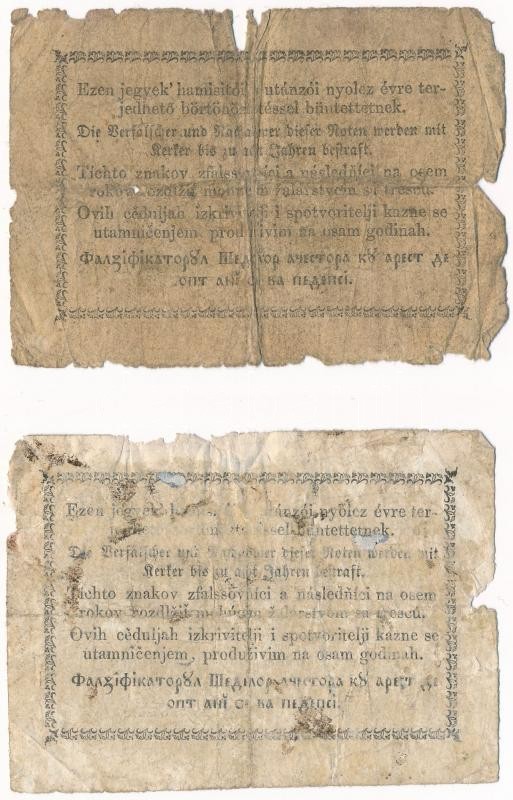 Ezen jegyek' hamisítói utánzói nyolcz évre ter-
jedhető börtönöztetéssel büntettetnek.
Die Verfälscher und Nachahmer dieser Noten werden mit
Kerker bis zu acht Jahren bestraft.
Tíchto znakov zfalssovníci a následňíci na osem
rokov žalarstvom sa trescú.
Ovih cėduljah izkrivitelji i spotvoritelji kazne se
utamničenjem, produživim na osam godinah.
Фалзіфікаторꙋл Шеділор ачестора кꙋ арест де
опт анї ва педепсі.
Ezen jegyek' utánzói nyolcz évre ter-
büntettetnek.
Die Verfälscher und Nachahmer dieser Noten werden mit
Kerker bis zu acht Jahren bestraft.
Tíchto znakov zfalssovníci a následňíci na osem
rokov žalarstvom sa trescú.
Ovih cėduljah izkrivitelji i spotvoritelji kazne se
utamničenjem, produživim na osam godinah.
Фалзіфікаторꙋл Шеділор ачестора кꙋ арест де
опт анї ва педепсі.